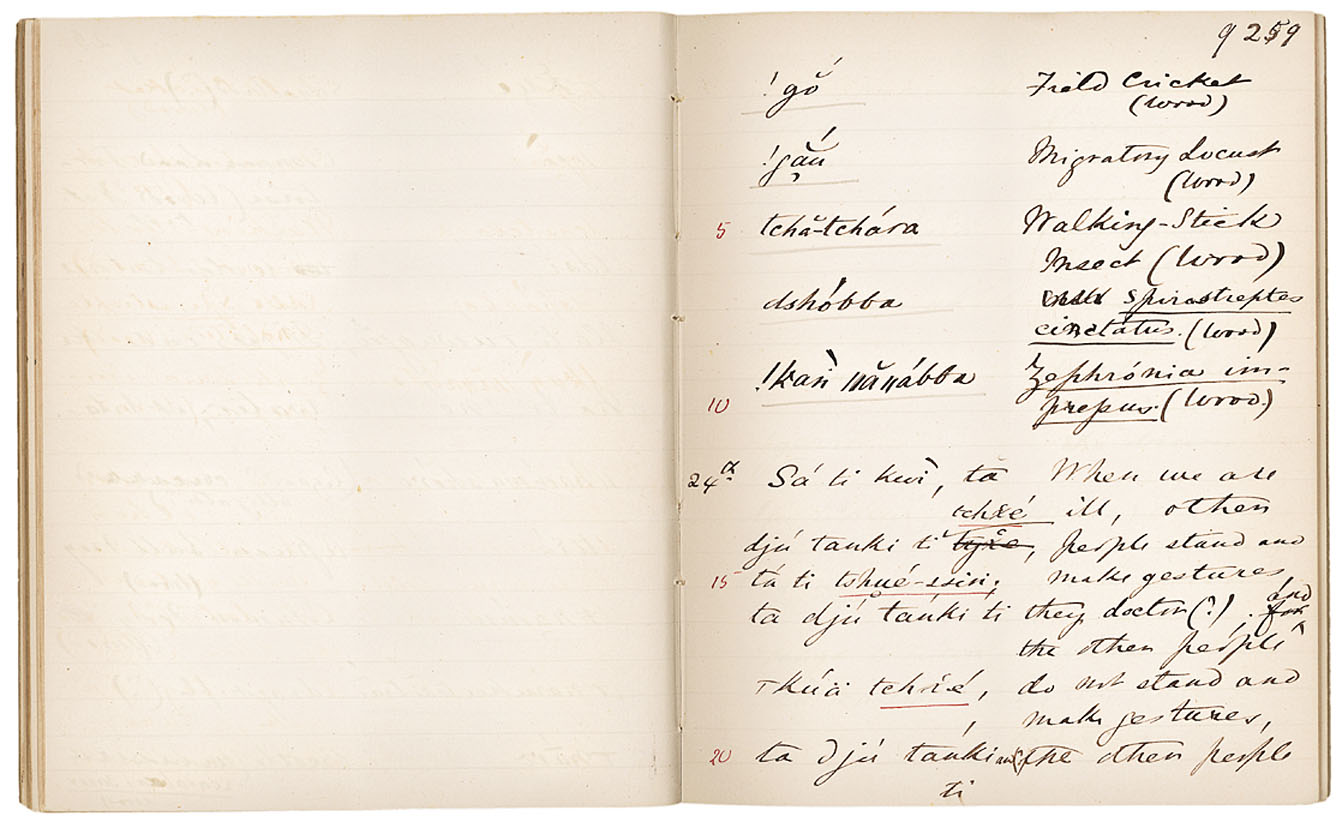 9259
!gŏ́ Field Cricket
(Wood)
!găú Migratory Locust
(Wood)
5 tchă-tchára Walking-Stick
Insect (Wood)
dshóbba Spirostreptes
cinctátus. (Wood)
!kaǹ nănábba Zephrónia im-
10 prepus. (Wood.)
24th Sá ti kwì, ta When we are
tchxé ill, other
djú tanki ti, people stand and
15 tá ti tshué-ssin; make gestures
ta djú tánki ti they doctor(?), and
the other people
tchxé, do not stand and
make gestures,
20 ta djú tánki the other people
ti